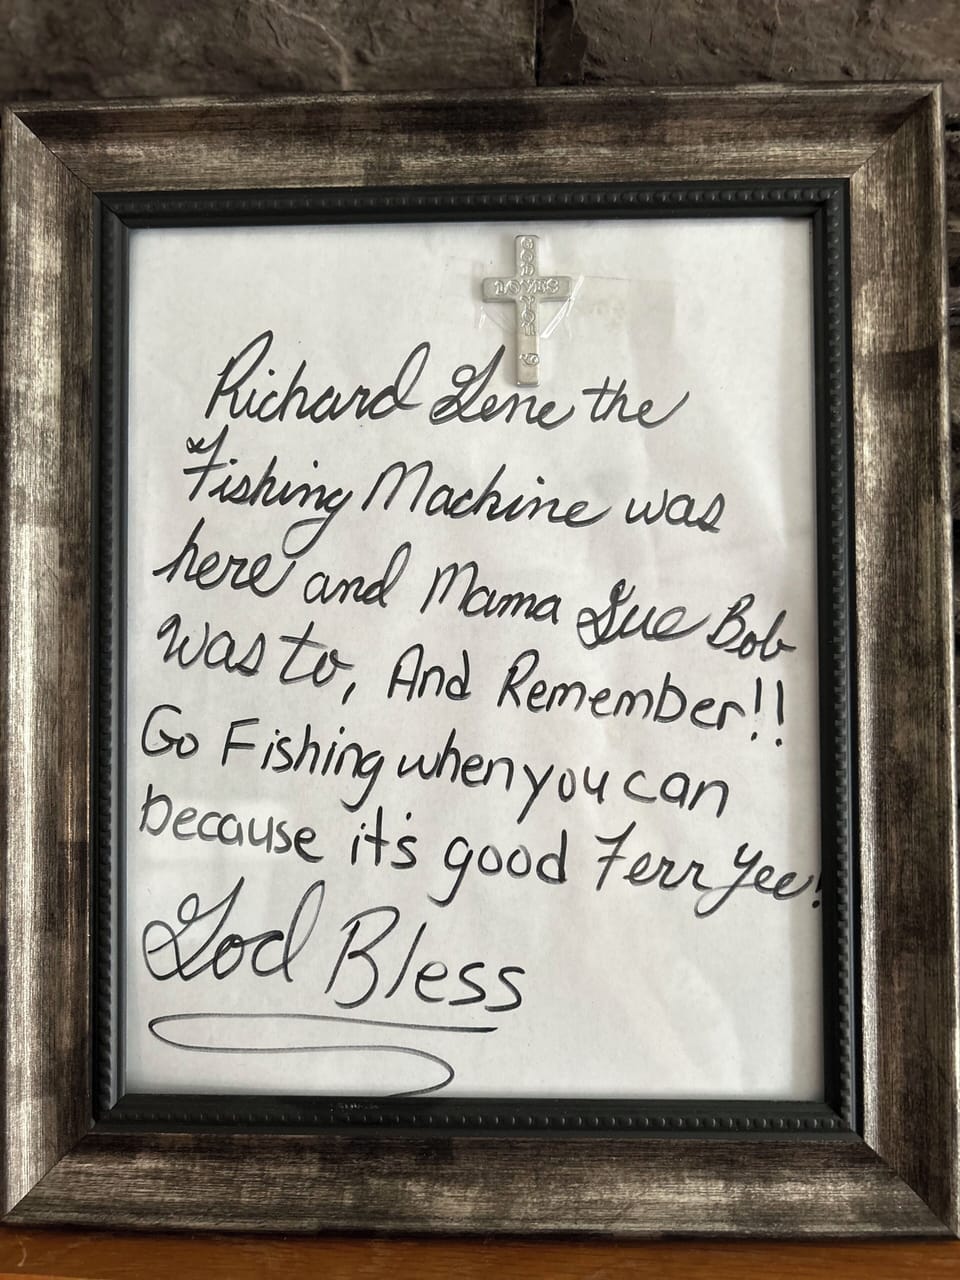 GOD
LOVES
YOU
Richard Gene the
Fishing Machine was
here and Mama Sue Bob
was to, And Remember!!
Go Fishing when you can
because it's good Ferr Yee!
God Bless